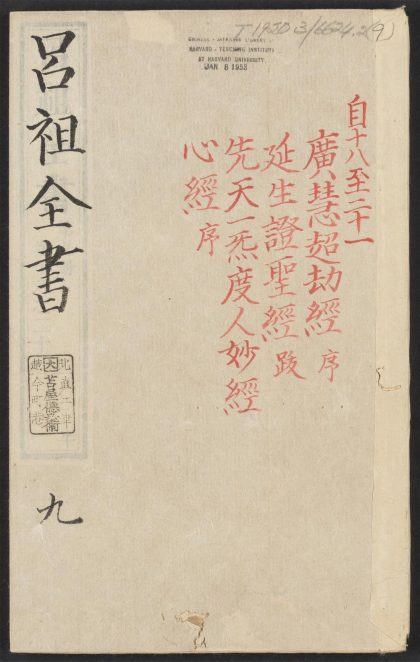 T 1920 3/6624.2(9)
CHINESE - JAPANESE LIBRARY
HARVARD - YENCHING INSTITUTE
AT HARVARD UNIVERSITY
JAN 8 1953
自十八至二十一
廣慧超劫經 序
延生證聖經 跋
先天一炁度人妙經
心經 序
呂祖全書
九